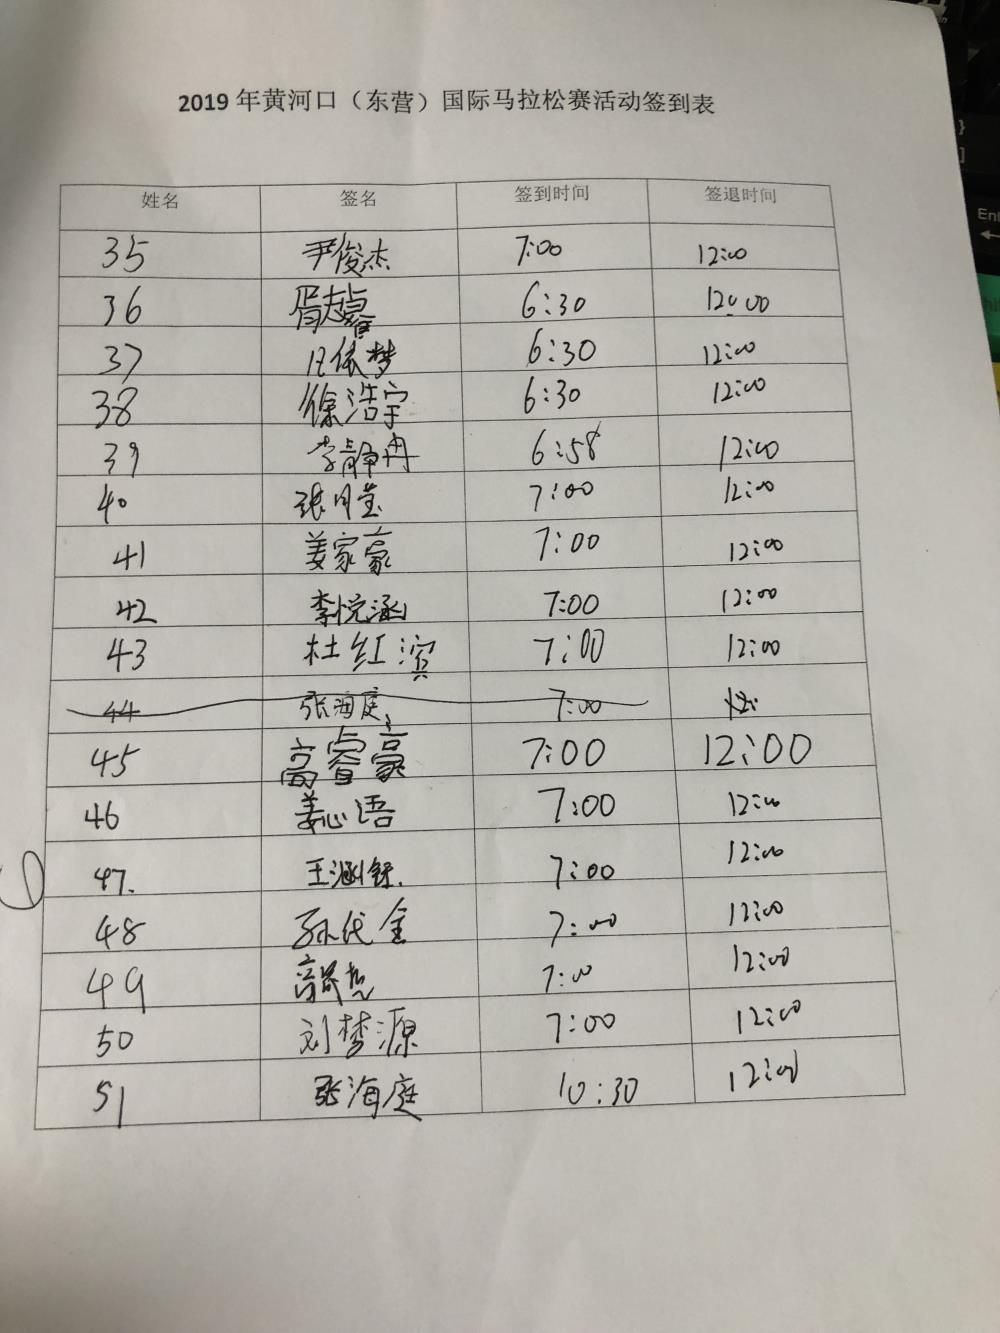 2019 年黄河口（东营）国际马拉松赛活动签到表
姓名 签名 签到时间 签退时间
35 尹俊杰 7:00 12:00
36 6:30 12:00
37 依梦 6:30 12:00
38 徐浩宇 6:30 12:00
39 李静冉 6:58 12:00
40 张月莹 7:00 12:00
41 姜家豪 7:00 12:00
42 李悦涵 7:00 12:00
43 杜红滨 7:00 12:00
44 张海庭 7:00
45 高睿豪 7:00 12:00
46 姜心语 7:00 12:00
47. 王涵 7:00 12:00
48 孙代金 7:00 12:00
49 高 7:00 12:00
50 刘梦源 7:00 12:00
51 张海庭 10:30 12:00
Ent